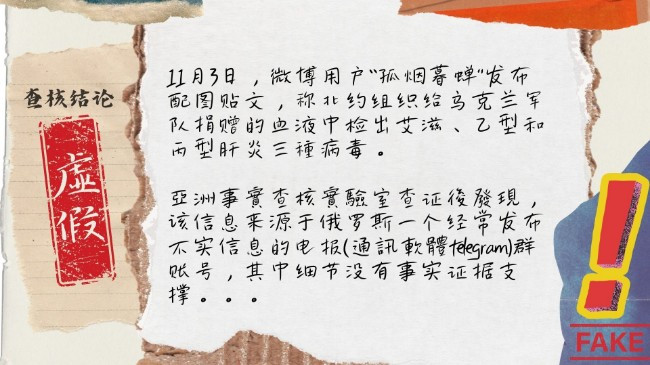 查核结论
虚
假
11月3日，微博用户"孤烟暮蝉"发布
配图贴文，称北约组织给乌克兰军
队捐赠的血液中检出艾滋、乙型和
丙型肝炎三種病毒。
亞洲事實查核實驗室查证後發現，
该信息来源于俄罗斯一个经常发布
不实信息的电报(通訊軟體telegram)群
账号，其中细节没有事实证据支
撑。。。
!
FAKE